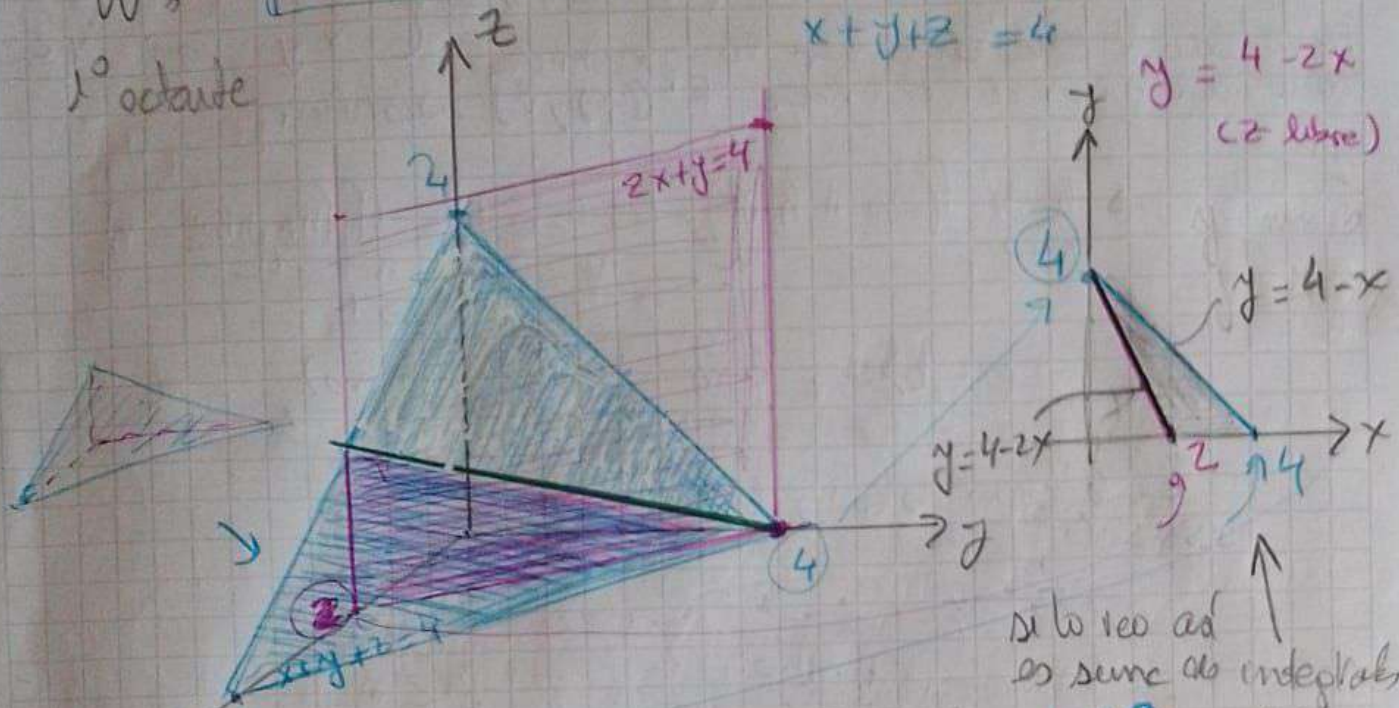 x + y + z = 4
1º octante
z
y = 4 - 2x
(z libre)
y
2
2x + y = 4
4
y = 4 - x
y = 4 - 2x
2
4
x
y
4
2
x + y + z = 4
si lo veo así
es suma de integrales